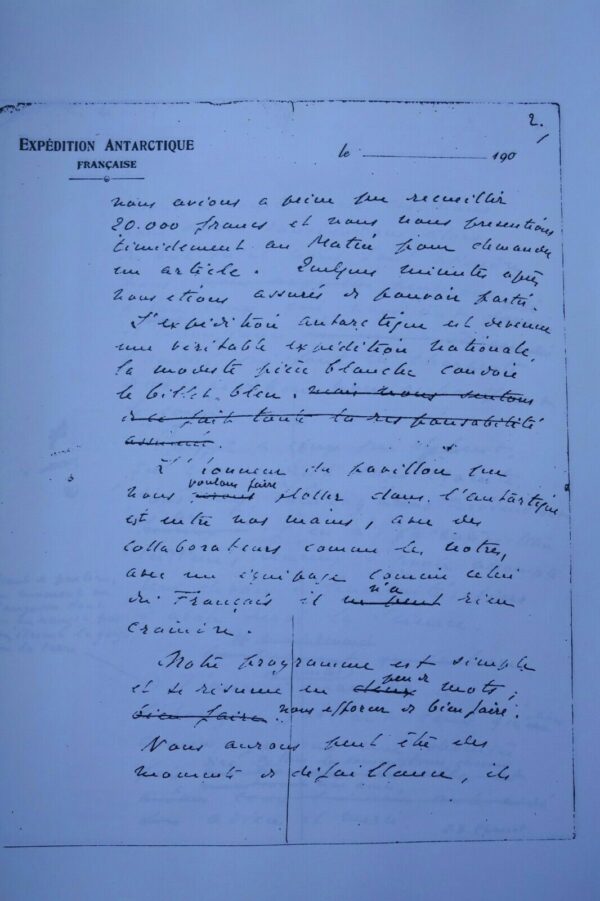 2.
EXPÉDITION ANTARCTIQUE
FRANÇAISE
le 190
nous avions a peine pu recueillir
20.000 francs et nous nous presentions
timidement au Matin pour demander
un article. Quelques minutes après
nous etions assurés de pouvoir partir.
L'expédition antarctique est devenue
une véritable expédition nationale,
la modeste pièce blanche coudoie
le billet bleu. mais nous sentons
de ce fait toute la responsabilité
assumé.
L'honneur du pavillon que
voulons faire
nous avons flotter dans l'antarctique
est entre nos mains, avec des
collaborateurs comme les notres,
avec un équipage comme celui
n'a
du Français il ne peut rien
craindre.
Notre programme est simple
peu de
et se résume en deux mots;
bien faire. nous efforcer de bien faire.
Nous aurons peut être des
moments de défaillance, ils